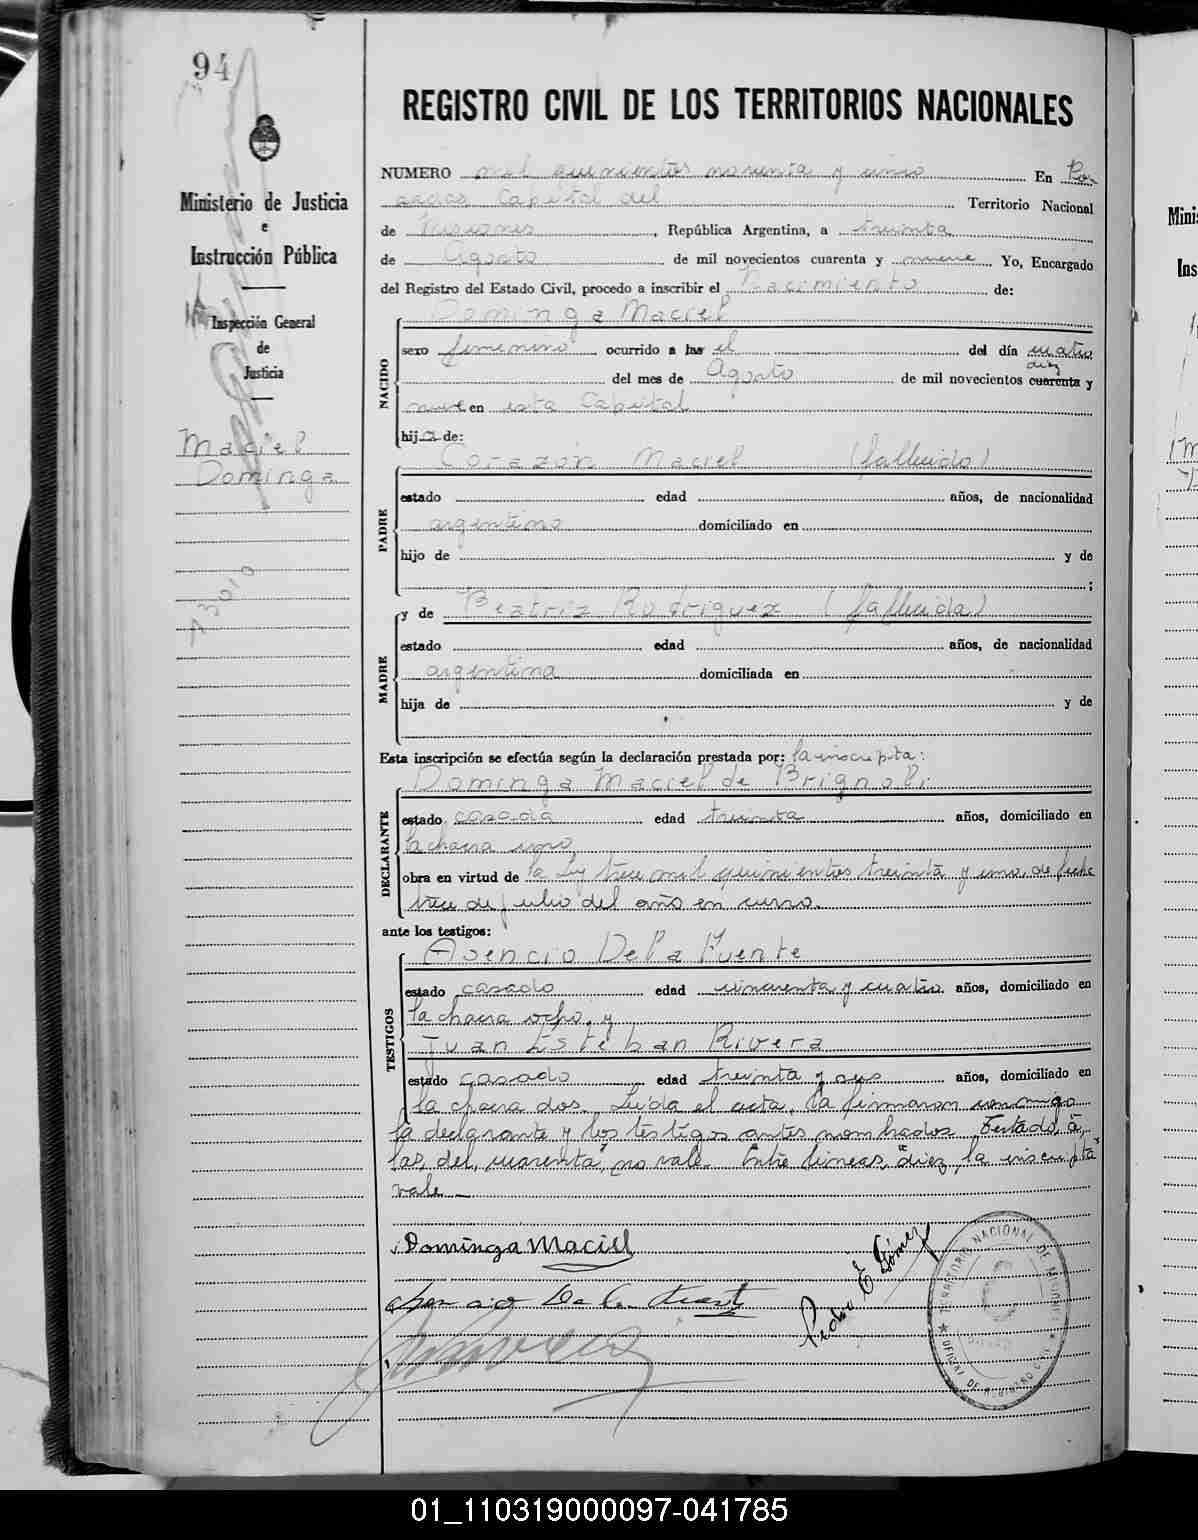 94
REGISTRO CIVIL DE LOS TERRITORIOS NACIONALES
Ministerio de Justicia
e
Instrucción Pública
Inspección General
de
Justicia
Maciel
Dominga
73010
NUMERO mil quinientos noventa y uno En Po
sadas Capital del Territorio Nacional
de Misiones, República Argentina, a treinta
de Agosto de mil novecientos cuarenta y nueve Yo, Encargado
del Registro del Estado Civil, procedo a inscribir el Nacimiento de:
NACIDO
Dominga Maciel
sexo femenino ocurrido a las el del día cuatro
diez
del mes de Agosto de mil novecientos cuarenta y
nueve en esta Capital
hija de:
PADRE
Corazón Maciel (fallecido)
estado edad años, de nacionalidad
argentino domiciliado en
hijo de y de
;
MADRE
y de Beatriz Rodriguez (fallecida)
estado edad años, de nacionalidad
argentina domiciliada en
hija de y de
Esta inscripción se efectúa según la declaración prestada por: la inscripta:
DECLARANTE
Dominga Maciel de Brignoli
estado casada edad treinta años, domiciliado en
la chacra uno
obra en virtud de la Ley trece mil quinientos treinta y uno, de fecha
trece de julio del año en curso.
ante los testigos:
TESTIGOS
Asencio De La Fuente
estado casado edad cincuenta y cuatro años, domiciliado en
la chacra ocho, y
Juan Esteban Rivera
estado casado edad treinta y seis años, domiciliado en
la chacra dos. Leída el acta, la firmaron conmigo
la declarante y los testigos antes nombrados. Testado "a
las, del, cuarenta", no vale. Entre lineas, "diez, la inscripta"
vale.-
Dominga Maciel
Asencio De La Fuente
Pedro E Gómez
TERRITORIO NACIONAL DE MISIONES
OFICINA DE REGISTRO CIVIL
Mini
Ins
01_110319000097-041785